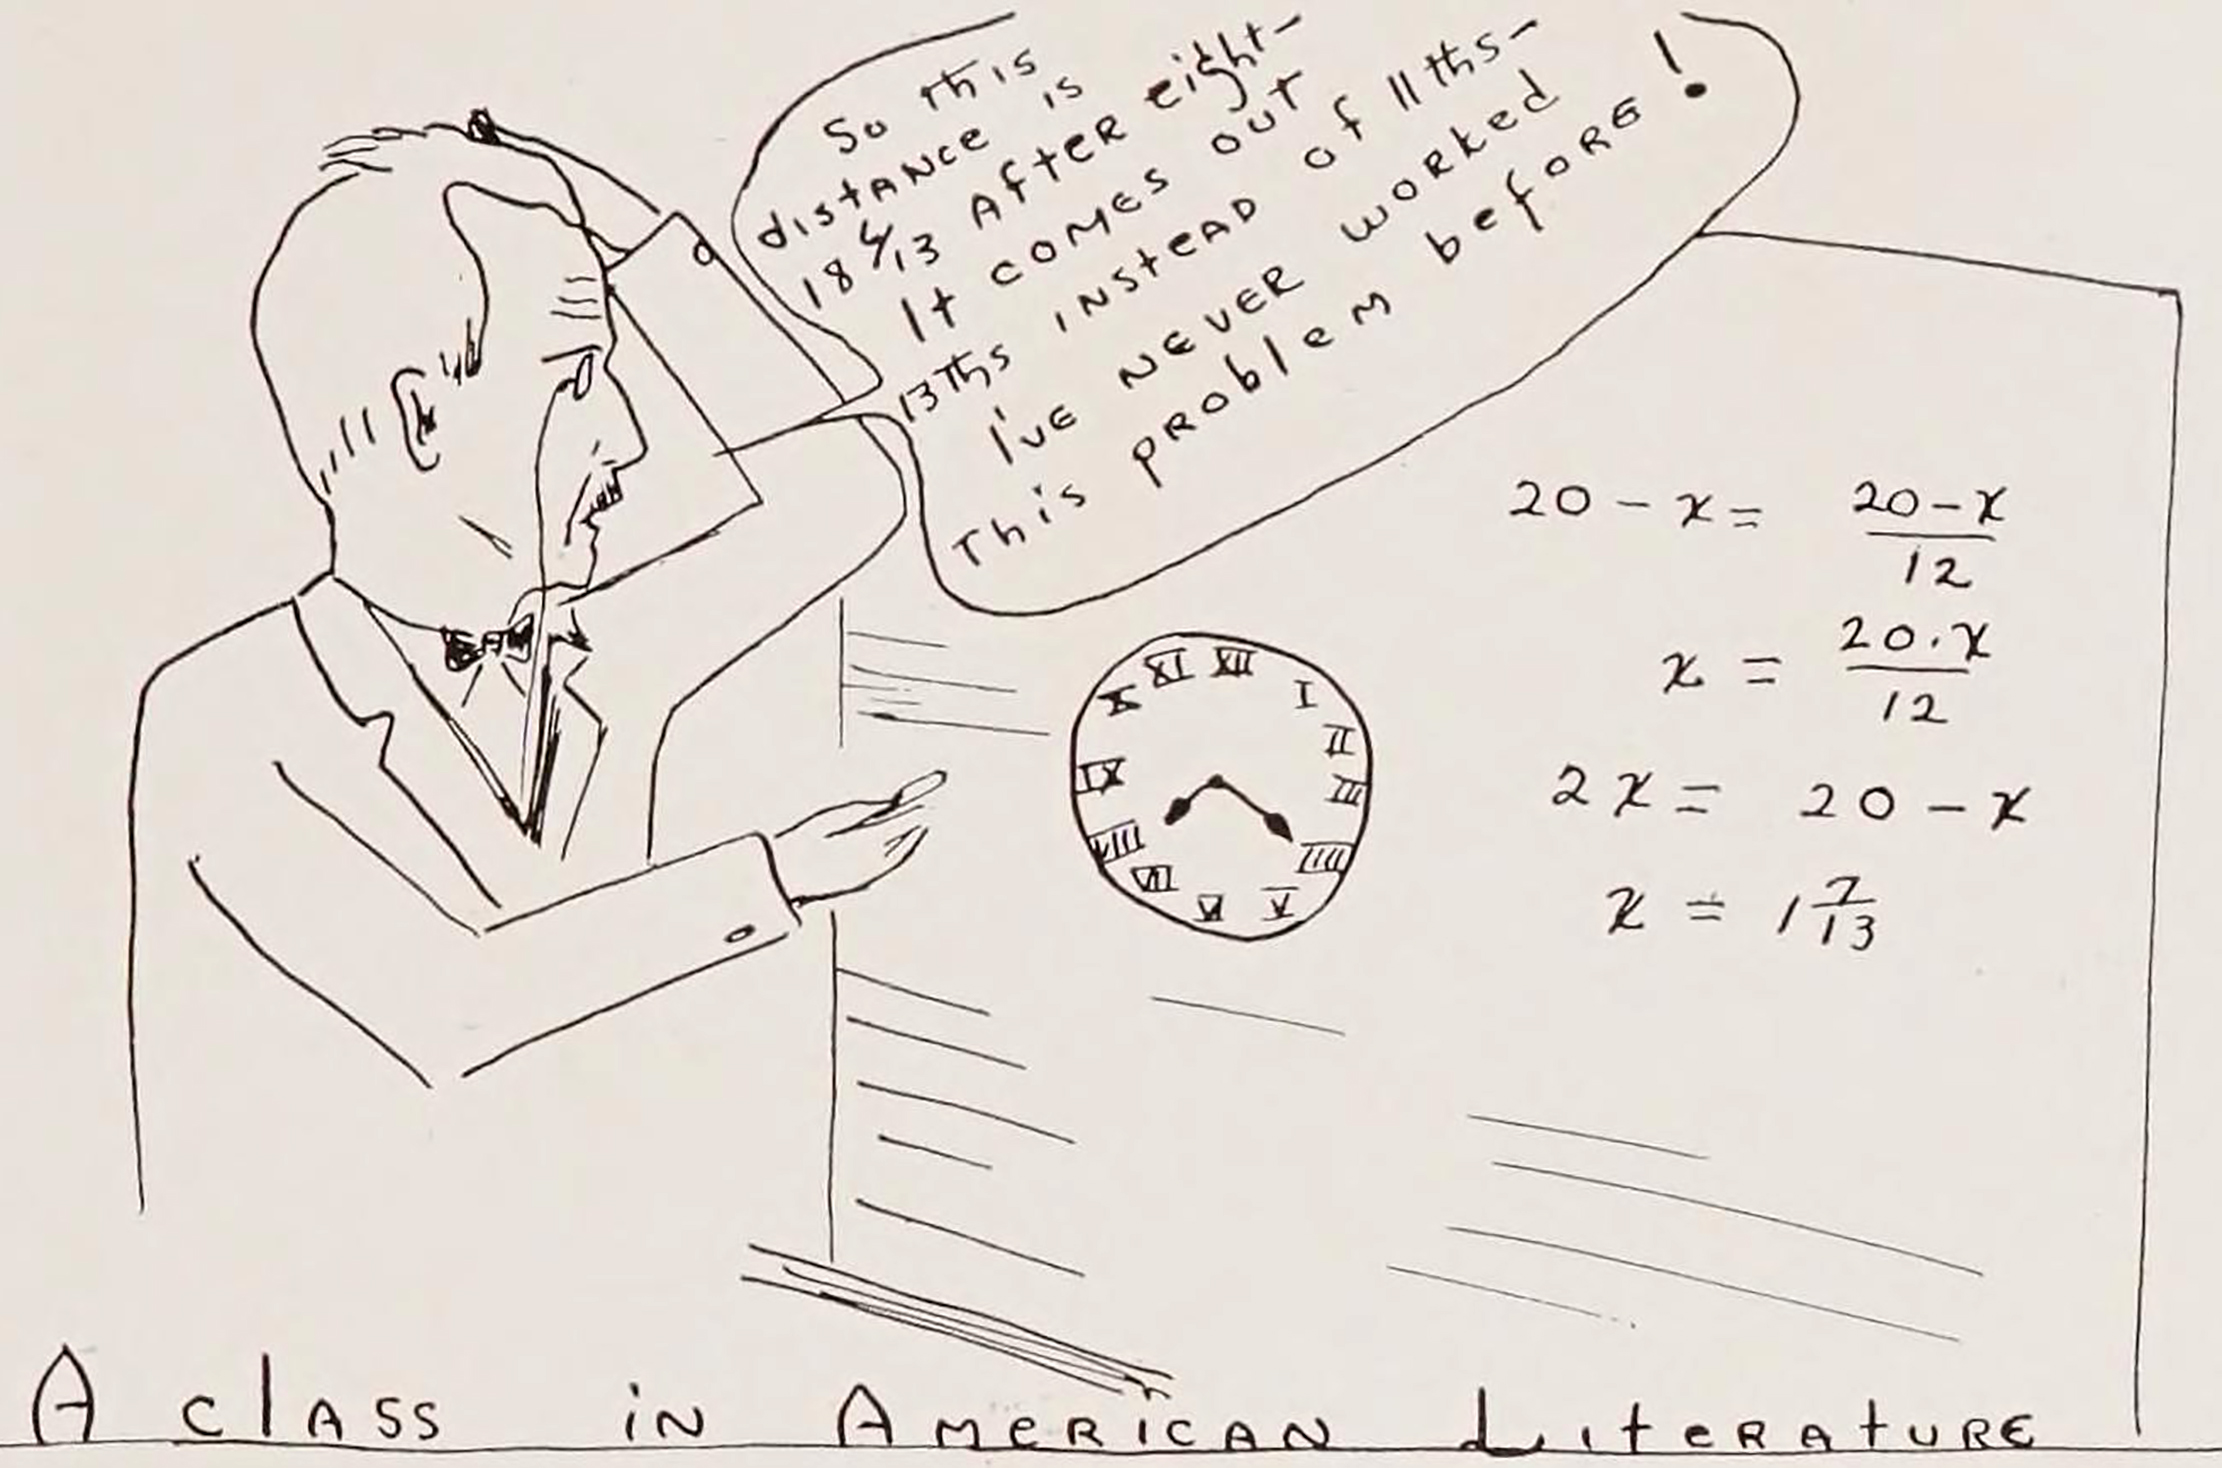 So this
distance is
18 6/13 After eight-
It comes out
13ths instead of 11ths-
I've never worked
This problem before!
20 - x = 20-x
12
x = 20.x
12
2x = 20 - x
x = 1 7/13
XII
I
II
III
IIII
V
VI
VII
VIII
IX
X
XI
A class in American Literature